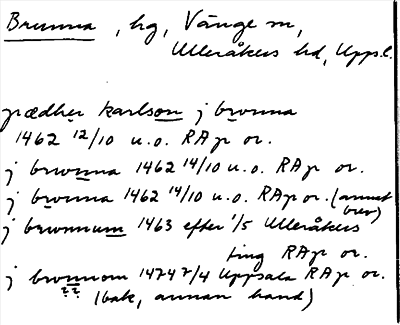 Brunna, hg, Vänge sn,
Ulleråkers hd, Uppl.
pædher karlson j bronna
1462 12/10 u.o. RAp or.
j brwnna 1462 14/10 u.o. RAp or.
j bronna 1462 14/10 u.o. RAp or. (annat brev)
j brwnnum 1463 efter 1/5 Ulleråkers
ting RAp or.
j bronnom 1474 7/4 Uppsala RAp or.
?? (bak, annan hand)